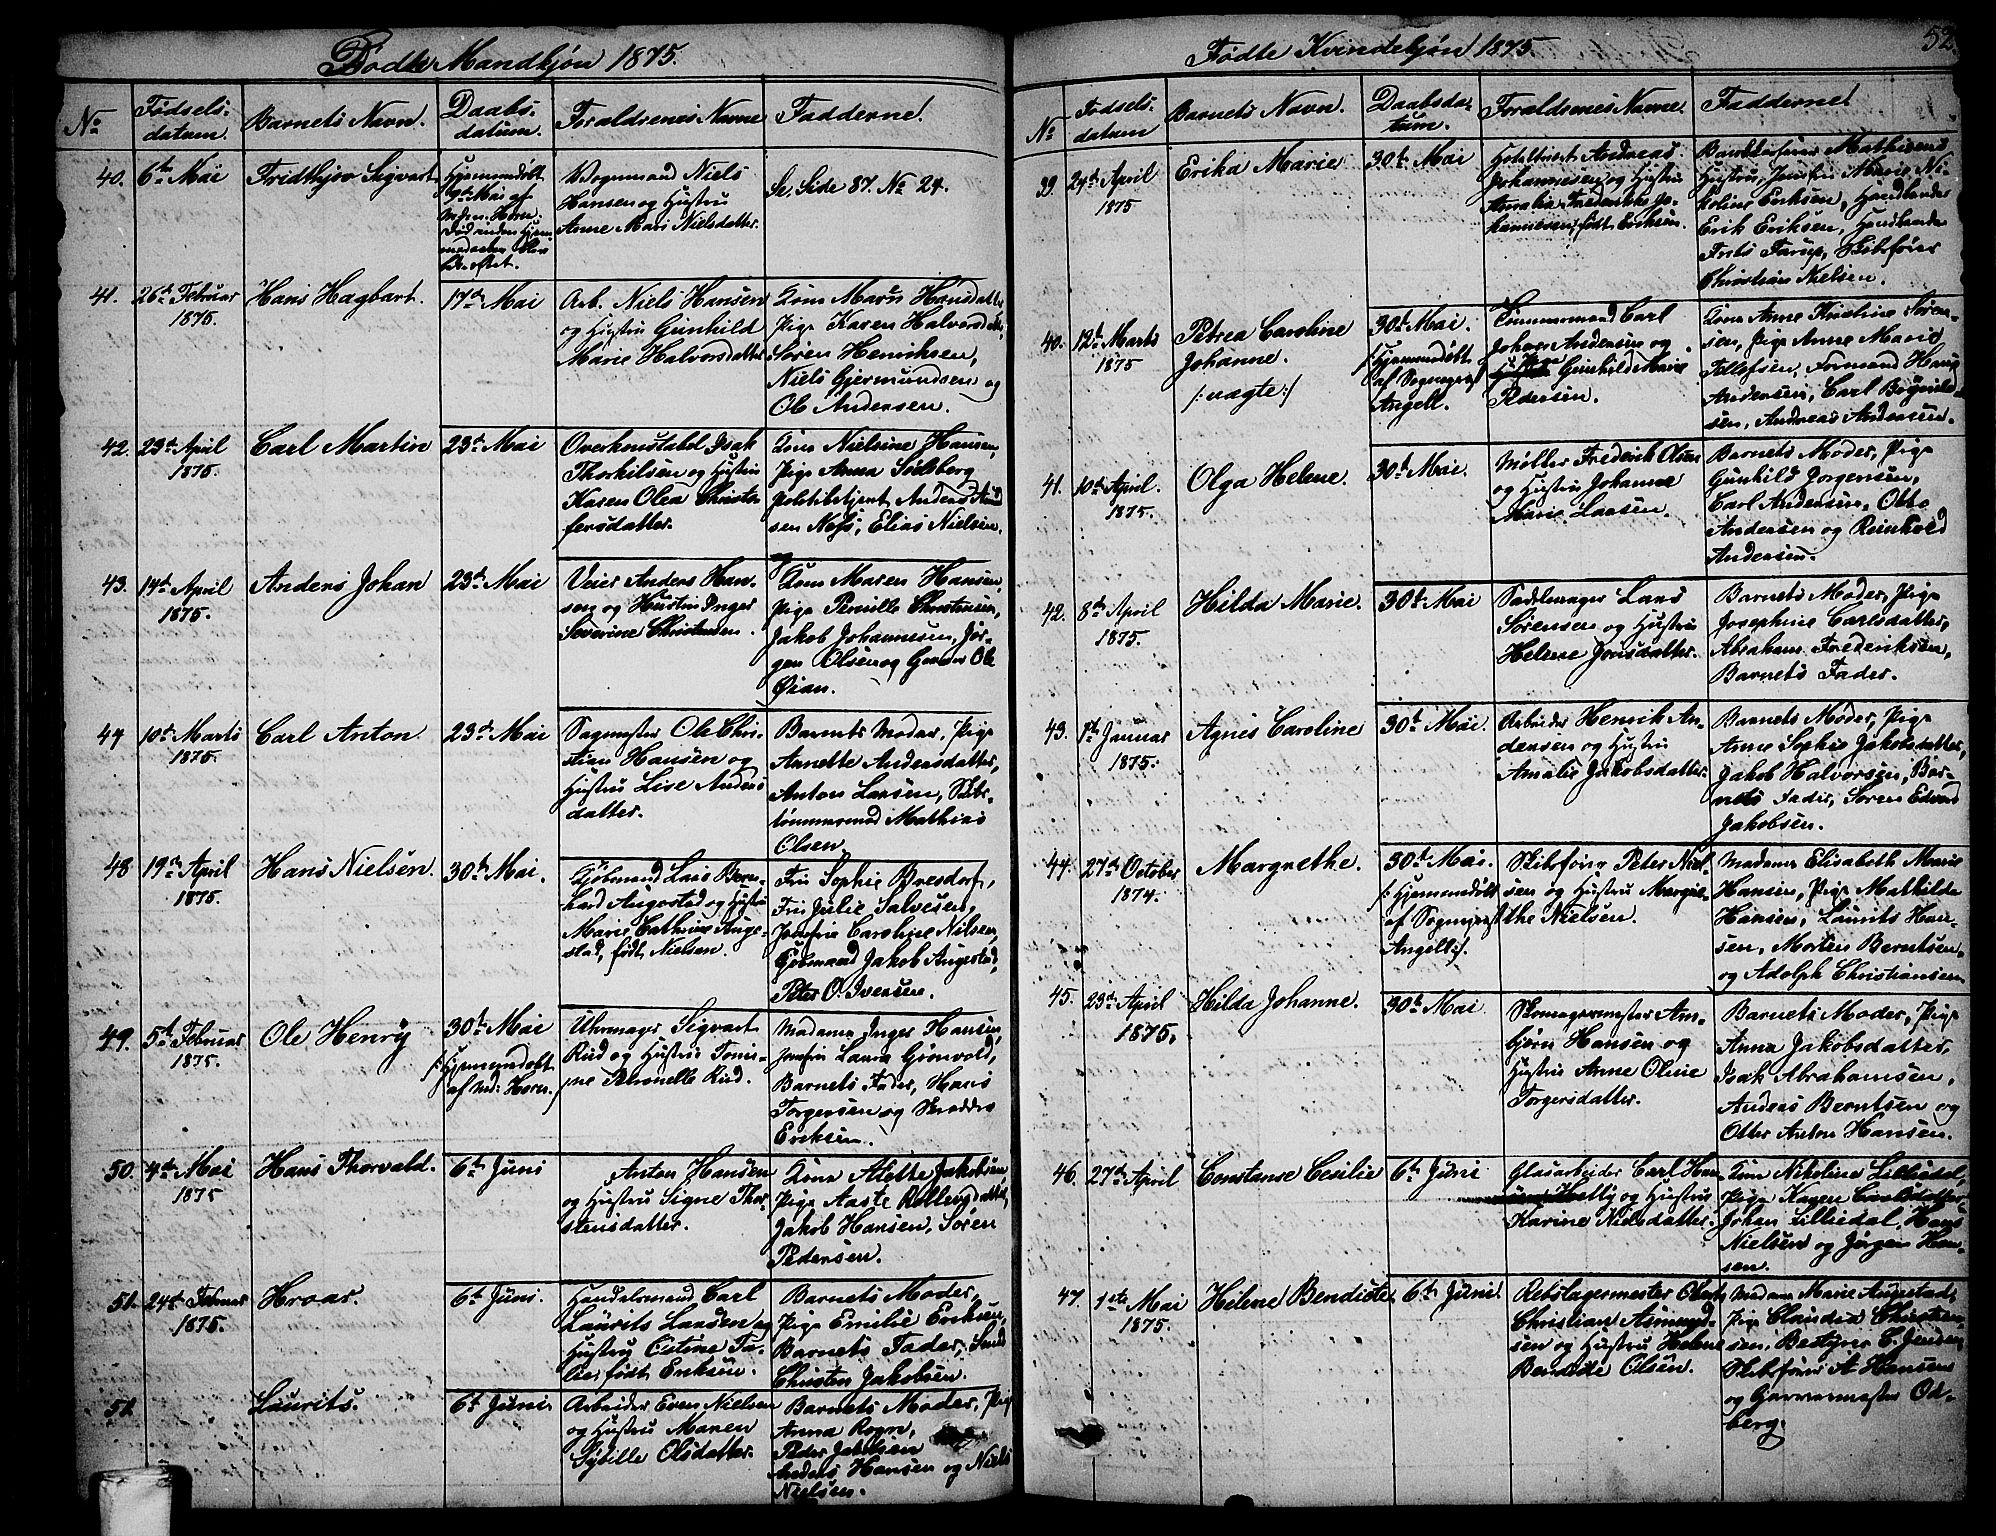 Fødte Mandkjøn 1875.
No
Fødsels-
datum.
Barnets Navn.
Daabs
datum.
Forældrenes Navne
Fadderne.
40.
6te Mai
Fridthjov Sigvart
Hjemmedøbt
Mai af
Død uden
Vognmand Niels
Hansen og Hustru
Anne Maris Nielsdatter.
Se, Side 87. No 24.
41.
26de Februar
1875.
Hans Hagbart.
17de Mai
Arb. Niels Hansen
og Hustru Gunhild
Marie Halvorsdatter
Kone Maren Hansdatter,
Pige Karen Halvorsdatter,
Søren Henriksen,
Niels Gjermundsen og
Ole Andersen.
42.
23de April
1875.
Carl Martin
23de Mai
Overkonstabel Isak
Thorkilsen og Hustru
Karen Olea Christof
fersdatter.
Kone Nielsine Hansen,
Pige Anna Solberg
Politibetjent Anders An
sen Næss, Elias Nielsen.
43.
14de April
1875.
Anders Johan
23de Mai
Veier Anders Han-
sen og Hustru Inger
Severine Christensen.
Kone Maren Hansen,
Pige Pernille Christensen,
Jakob Johannesen, Jør-
gen Olsen og Garver Ole
Øian.
44
10de Marts
1875.
Carl Anton.
23de Mai
Sagmester Ole Chri-
stian Hansen og
Hustru Lise Anders
datter.
Barnets Moder, Pige
Annette Andersdatter,
Anton Larsen, Skibs-
tømmermand Mathias
Olsen.
48
19de April
1875.
Hans Nielsen.
30de Mai.
Kjøbmand Lars Bern-
hard Augestad og Hustru
Marie Cathrine Auge-
stad, født Nielsen.
Fru Sophie Bresdorf,
Fru Julie Salvesen,
Jomfru Caroline Nilsen,
Kjøbmand Jakob Augestad,
Peter O. Iversen.
49.
5te Februar
1875.
Ole Henry
30de Mai
/:Hjemmedøbt
af Md: Horn:/
Uhrmager Sigvart
Rud og Hustru Tomi-
ne Petronelle Rud.
Madame Inger Hansen,
Jomfru Laura Grønvold,
Barnets Fader, Hans
Torgersen og Skrædder
Eriksen.
50.
4de Mai
1875
Hans Thorvald.
6te Juni
Anton Hansen
og Hustru Signe Thor-
stensdatter.
Kone Alette Jakobsen
Pige Aaste Rollevsdatter,
Jakob Hansen, Søren
Pedersen.
51.
24de Februar
1875.
Hroar.
6te Juni.
Handelsmand Carl
Laurits Larsen og
Hustru Cistine Ta-
lie, født Eriksen.
Barnets Moder,
Pige Emilie Eriksen,
Barnets Fader,
Christen Jakobsen.
51
Laurits.
6te Juni.
Arbeider Even Nielsen
og Hustru Maren
Sybille Olsdatter.
Barnets Moder, Pige
Anna Rogn,
Peder Jakobsen
Anders Hansen og Niels
Nielsen.
Fødte Kvindekjøn 1875
52.
No
Fødsels-
datum
Barnets Navn.
Daabsda-
tum.
Forældrenes Navne.
Fadderne
39.
24de April
1875
Erika Marie
30te Mai
Hotelvært Andreas
Johannesen og Hustru
Amalie Frederikke Jo-
hannesen, født Eriksen.
Mathisens
Hustru, Jomfru Marie Ni-
koline Eriksen, Handlende
Erik Eriksen, Handlende
Frits Farup, Skibsfører
Christian Nielsen.
40.
12te Marts
1875
Petrea Caroline
Johanne.
/:uægte:/
30te Mai.
/:Hjemmedøbt
af Sognepræst
Angell.
Tømmermand Carl
Johan Andersen og
Pige Gunhild Marie
Pedersen.
Kone Anne Kirstine Søren-
sen, Pige Anne Marie
Tellefsen, Formand Hans
Andersen, Carl Brynild-
sen, Andreas Andersen.
41.
10de April.
1875.
Olga Helene.
30te Mai.
Møller Frederik Olsen
og Hustru Johanne
Marie Larsen.
Barnets Moder, Pige
Gunhild Jørgensen,
Carl Andersen, Otto
Andersen og Reinhold
Andersen.
42.
8de April
1875.
Hilda Marie.
30te Mai
Sadelmager Lars
Sørensen og Hustru
Helene Jonsdatter.
Barnets Moder, Pige
Josephine Carlsdatter,
Abraham Frederiksen,
Barnets Fader.
43.
1ste Januar
1875.
Agnes Caroline
30te Mai.
Arbeider Henrik An-
dersen og Hustru
Amalie Jakobsdatter.
Barnets Moder, Pige
Anne Sophie Jakobsdatter,
Jakob Halvorsen, Bar-
nets Fader, Søren Edvard
Jakobsen.
44.
27de October
1874.
Margrethe.
30te Mai.
/:Hjemmedøbt
af Sognepræst
Angell:/.
Skibsfører Peter Niel-
sen og Hustru Margre-
the Nielsen.
Madame Elisabeth Marie
Hansen, Pige Mathilde
Hansen, Laurits Han-
sen, Morten Berntsen
og Adolph Christiansen
45.
23de April
1875.
Hilda Johanne.
30te Mai
Skomagermester Arn-
bjørn Hansen og
Hustru Anne Oline
Torgersdatter.
Barnets Moder, Pige
Anna Jakobsdatter,
Isak Abrahamsen,
Anders Berntsen og
Otter Anton Hansen.
46.
27de April
Constanse Cecilie
6te Juni
Glasarbeider Carl Han
og Hustru
Karine Nielsdatter.
Kone Nikoline Lilliedal,
Pige Karen
Johan Lilliedal, Hans
Nielsen og Jørgen Han-
sen.
47.
1ste Mai
1875.
Helene Bendicte
6te Juni
Rebslagermester Oluf
Christian Asmund-
sen og Hustru Helene
Bendicte Olsen.
Madame Marie Augestad,
Pige Claudia Christen-
sen, Bestyrer C. Jensen,
Skibsfører A. Hansen
og Garvermester Od-
berg.